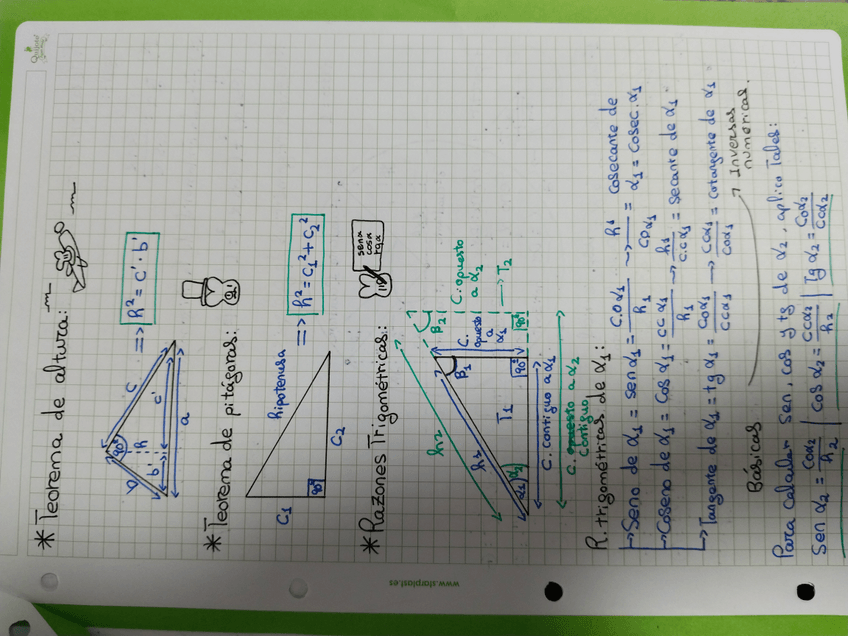 * Teorema de altura:
b
c
90º
h
b'
c'
a
=> h² = c' · b'
* Teorema de pitágoras:
C₁
hipotenusa
90º
C₂
=> h² = c₁² + c₂²
* Razones Trigonométricas:
sen α
cos α
tg α
h₂
h₁
β₁
β₂
C. opuesto a α₁
C. opuesto a α₂
T₁
→ T₂
α₁
α₂
90º
90º
C. contiguo a α₁
C. opuesto a α₂
contiguo
R. trigonométricas de α₁:
→ Seno de α₁ = sen α₁ = C.O α₁ / h₁ → h₁ / CO α₁ = cosecante de α₁ = cosec. α₁
→ Coseno de α₁ = Cos α₁ = CC α₁ / h₁ → h₁ / C.C α₁ = Secante de α₁
→ Tangente de α₁ = tg α₁ = CO α₁ / CC α₁ → CC α₁ / CO α₁ = cotangente de α₁
Básicas
→ Inversas numéricas.
Para calcular sen, cos y tg de α₂, aplico Tales:
Sen α₂ = CO α₂ / h₂ | Cos α₂ = CC α₂ / h₂ | Tg α₂ = CO α₂ / CC α₂
www.starplast.es